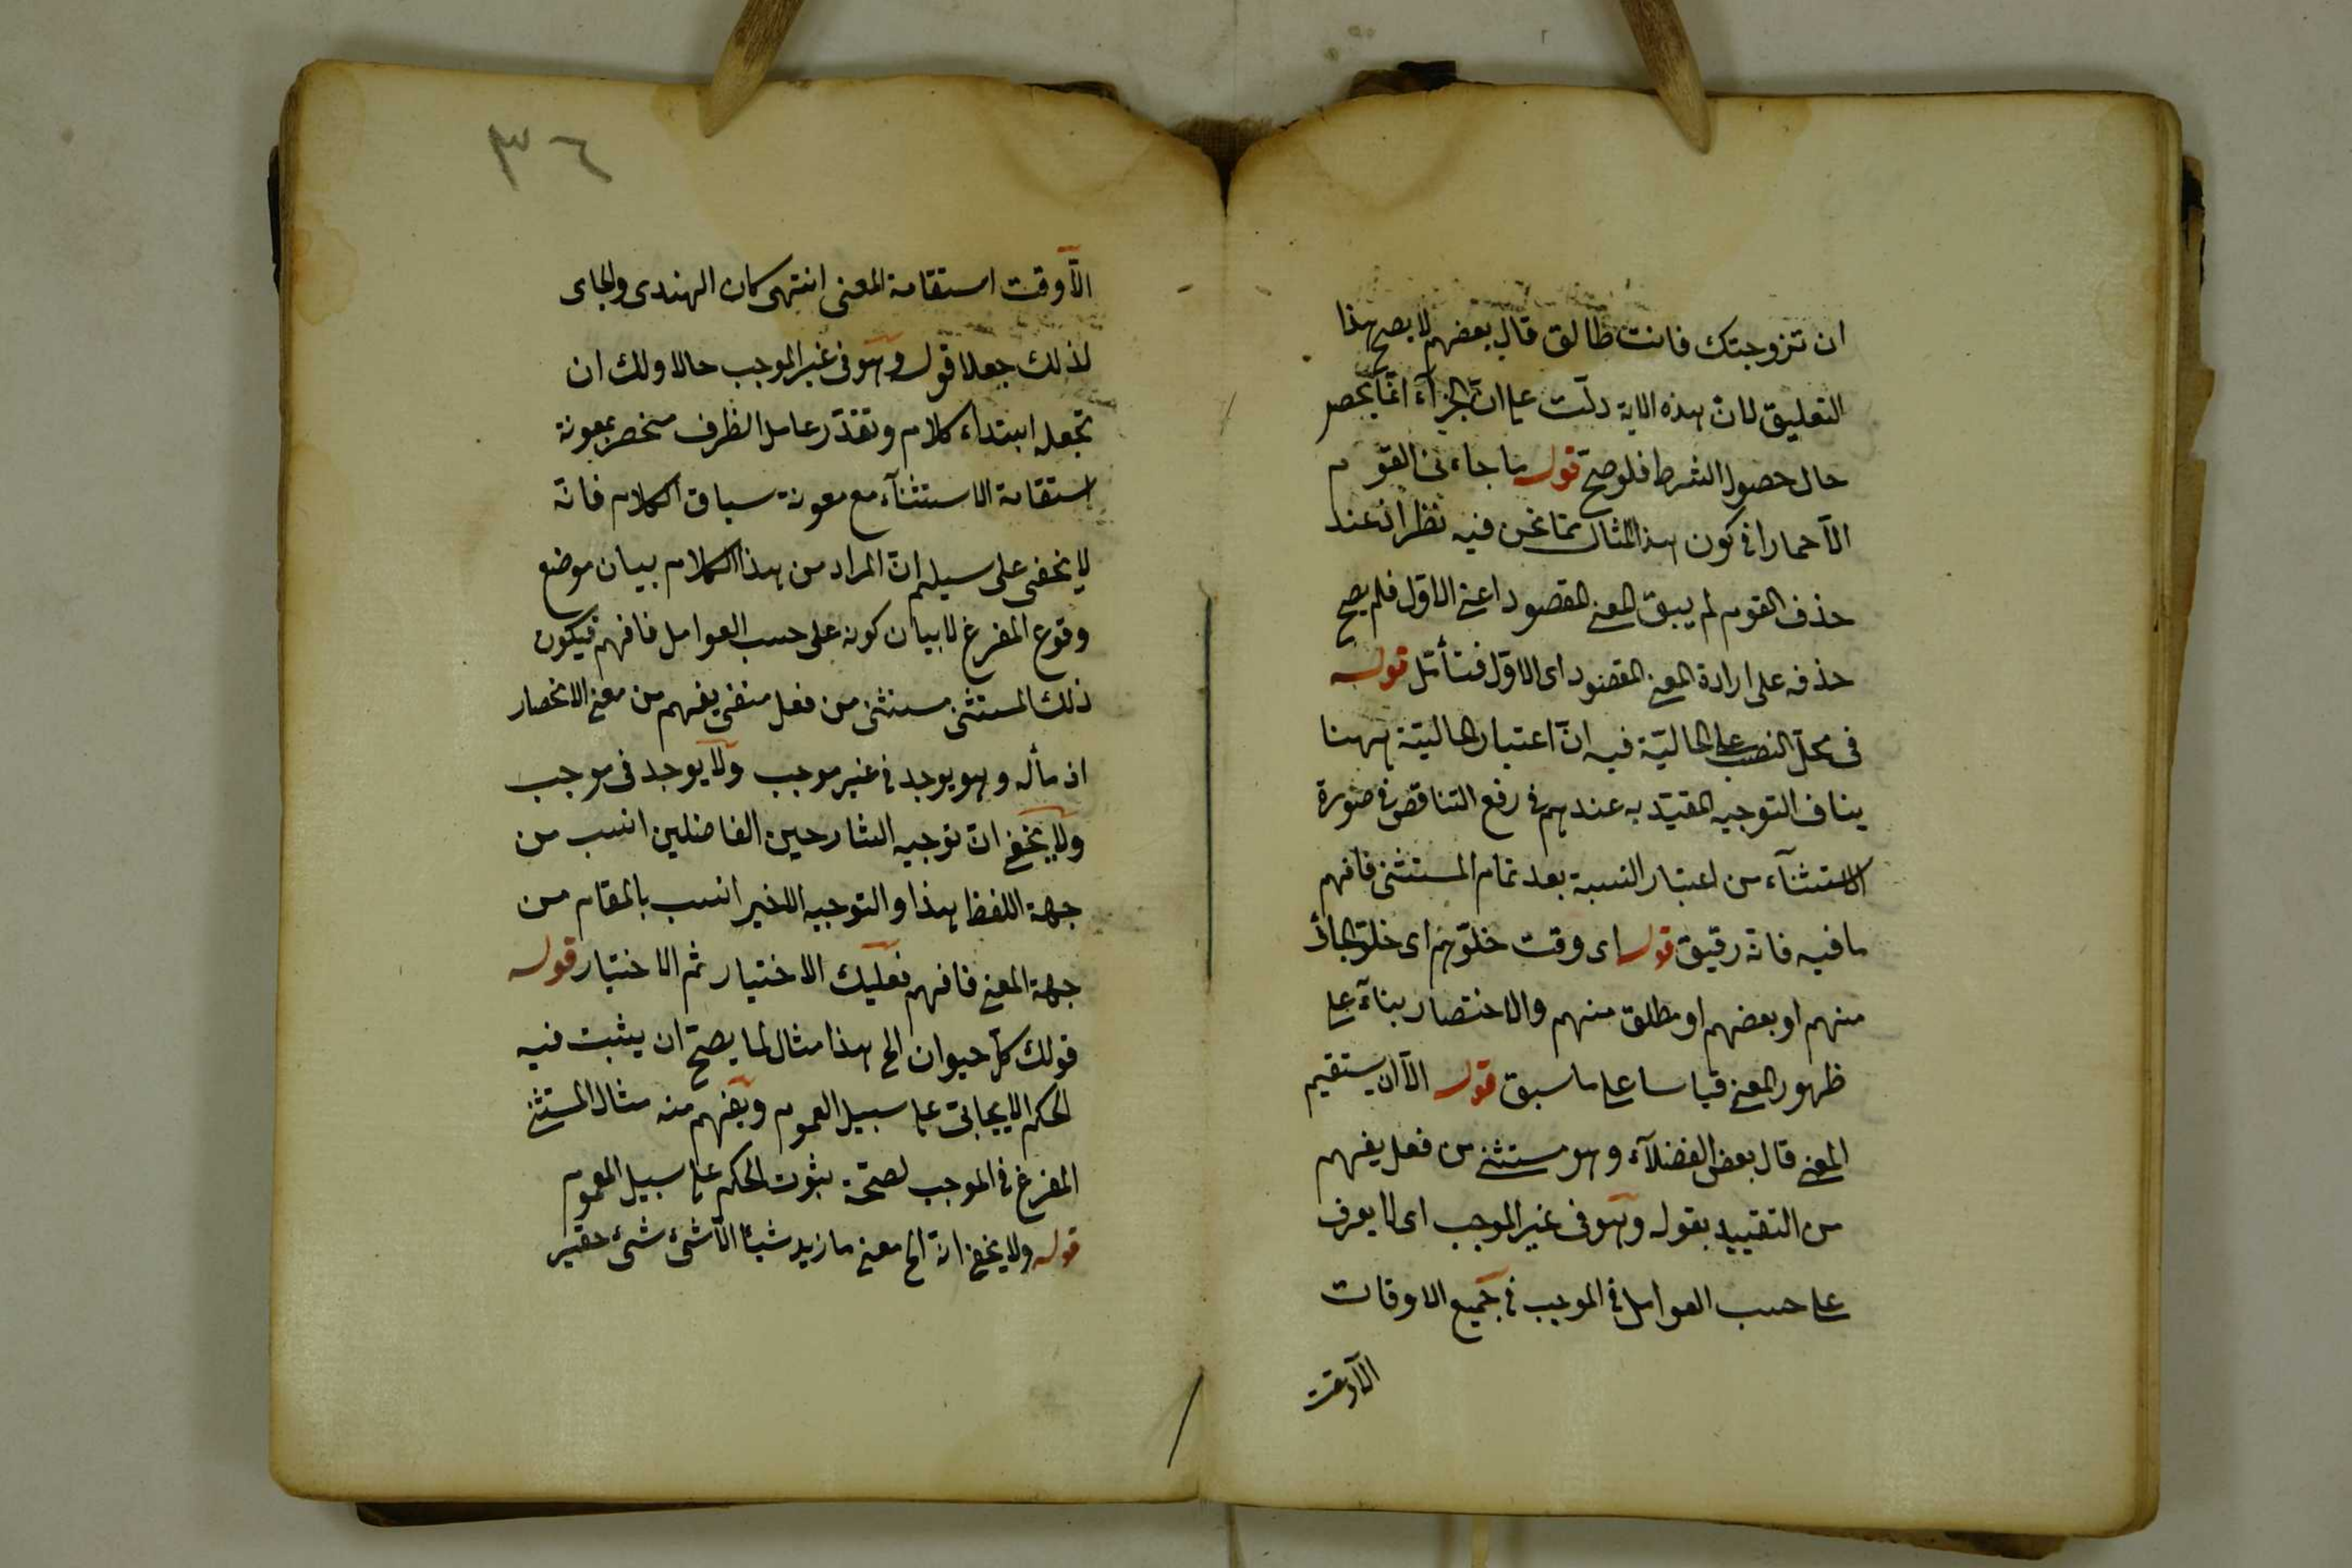 ان تزوجتك فانت طالق قال بعضهم لا يصح هذا
التعليق لان هذه الاية دلت على ان الجزآء انما يحصر
حال حصول الشرط فلو صح قوله ما جاءنى القوم
الا حمارا فى كون هذا المثال مما نحن فيه نظر اذ عند
حذف القوم لم يبق المعنى المقصود اعنى الاول فلم يصح
حذفه على ارادة المعنى المقصود اى الاول فتأمل قوله
فى محل النصب على الحالية فيه ان اعتبار الحالية ههنا
يناف التوجيه المقيد به عندهم فى رفع التناقض فى صورة
الاستثنآء من اعتبار النسبة بعد تمام المستثنى فافهم
ما فيه فانه رقيق قوله اى وقت خلوهم اى خلو الجائى
منهم او بعضهم او مطلق منهم والاختصار بنآء على
ظهور المعنى قياسا على ما سبق قوله الا ان يستقيم
المعنى قال بعض الفضلآء وهو مستثنى من فعل يفهم
من التقييد بقوله وهو فى غير الموجب اى لا يعرف
على حسب العوامل فى الموجب فى جميع الاوقات
الا وقت
٣٦
الا وقت استقامة المعنى انتهى كان الهندى والجامى
لذلك جعلا قوله وهو فى غير الموجب حالا ولك ان
تجعله ابتداء كلام وتقدر عامل الظرف منحصر بمعونة
استقامة الاستثنآء مع معونة سياق الكلام فانه
لا يخفى على سيلم ان المراد من هذا الكلام بيان موضع
وقوع المفرغ لا بيان كونه على حسب العوامل فافهم فيكون
ذلك المستثنى مستثنى من فعل منفى يفهم من معنى الانحصار
اذ مأله وهو يوجد فى غير موجب ولا يوجد فى موجب
ولا يخفى ان توجيه الشارحين الفاضلين انسب من
جهة اللفظ هذا والتوجيه الاخير انسب بالمقام من
جهة المعنى فافهم فعليك الاختيار ثم الاختبار قوله
قولك كل حيوان الخ هذا مثال لما يصح ان يثبت فيه
الحكم الايجابى على سبيل العموم ويفهم منه مثال المستثنى
المفرغ فى الموجب لصحة ثبوت الحكم على سبيل العموم
قوله ولا يخفى انه الخ معنى ما زيد شيئا الا شئ شئ حقير